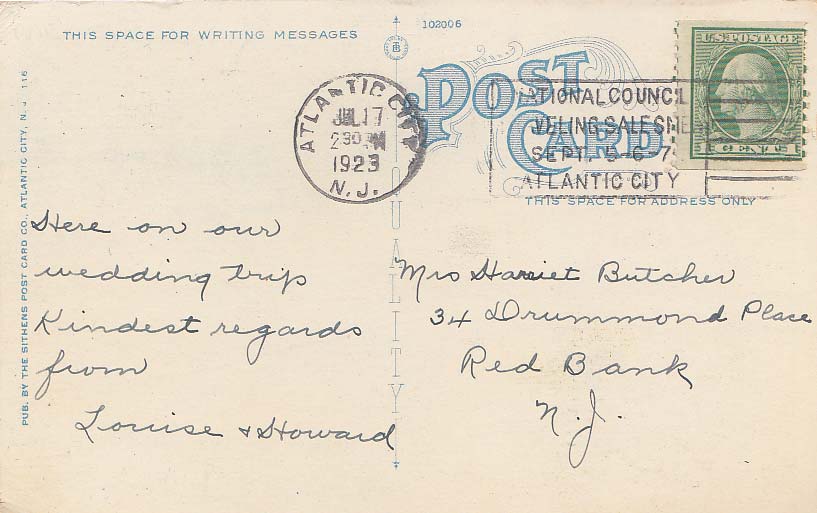 THIS SPACE FOR WRITING MESSAGES
102006
POST CARD
U.S. POSTAGE
ATLANTIC CITY
JUL 17
2 30 PM
1923
N.J.
NATIONAL COUNCIL
VELING SALESME
SEPT. 5-6-7
ATLANTIC CITY
THIS SPACE FOR ADDRESS ONLY
QUALITY
PUB. BY THE SITHENS POST CARD CO., ATLANTIC CITY, N. J. 116
Here on our
wedding trip
Kindest regards
from
Louise & Howard
Mrs Harriet Butcher
34 Drummond Place
Red Bank
N. J.